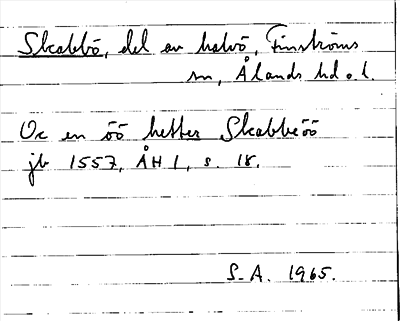 Skabbö, del av halvö, Finströms
sn, Ålands hd o. l.
Oc en öö hetter Skabbeöö
jb 1557, ÅH 1, s. 18.
S-A. 1965.